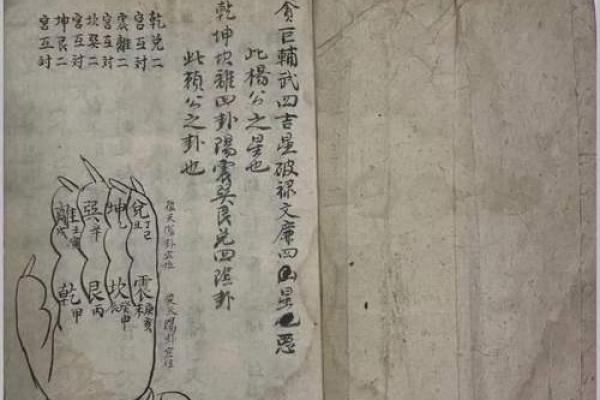 貪巨輔武四吉星破祿文廉四凶星惡
此楊公之星也
乾坤坎離四卦陽震巽艮兌四陰卦
此賴公之卦也
乾兌二
宮互対
震離二
宮互対
坎巽二
宮互対
坤艮二
宮互対
兌丁巳丑
坤乙
巽辛
離壬寅戌
震庚亥未
坎癸申
艮丙
乾甲